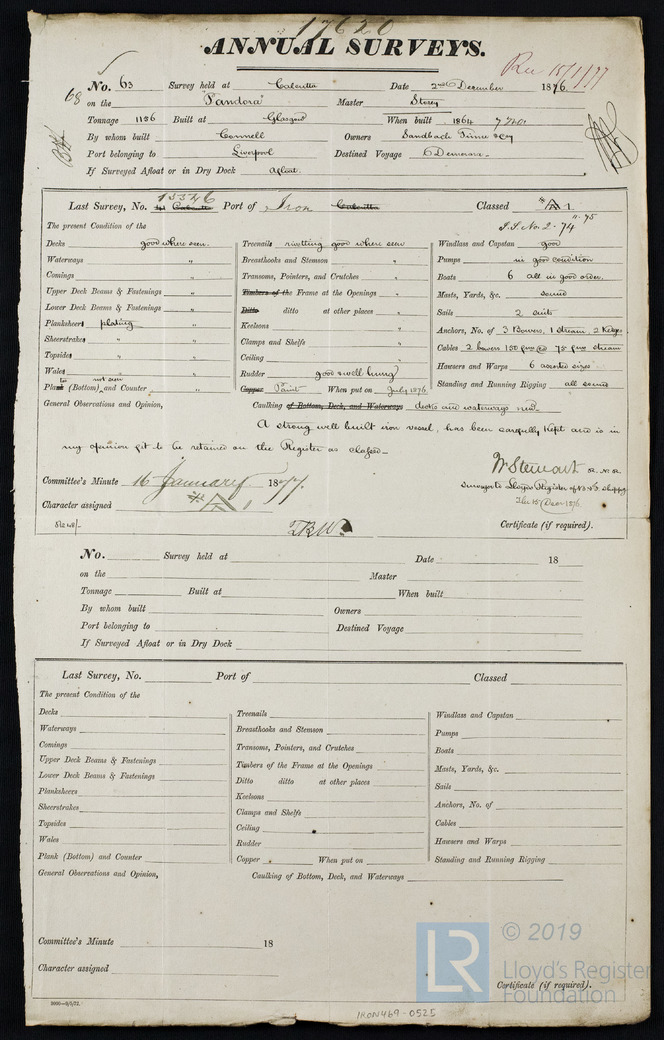 17620
ANNUAL SURVEYS.
Rec 15/1/77
68
No. 63 Survey held at Calcutta Date 2nd December 1876
on the "Pandora" Master Storey
Tonnage 1186 Built at Glasgow When built 1864
By whom built Connell Owners Sandbach Tinne & Co
Port belonging to Liverpool Destined Voyage Demerara
If Surveyed Afloat or in Dry Dock Afloat.
Last Survey, No. 15526 Port of Iron Calcutta Classed A 1
11.75
S.S. No. 2-74
The present Condition of the
Decks good where seen.
Waterways "
Comings "
Upper Deck Beams & Fastenings "
Lower Deck Beams & Fastenings "
Planksheers plating "
Sheerstrakes "
Topsides "
Wales "
Plank (Bottom) and Counter not seen "
Treenails rivetting good where seen
Breasthooks and Stemson "
Transoms, Pointers, and Crutches "
Timbers of the Frame at the Openings "
Ditto ditto at other places "
Keelsons "
Clamps and Shelfs "
Ceiling "
Rudder good & well hung
Copper Paint When put on July 1876
Windlass and Capstan good
Pumps in good condition
Boats 6 all in good order.
Masts, Yards, &c. sound
Sails 2 suits
Anchors, No. of 3 Bowers, 1 stream, 2 Kedges
Cables 2 bowers 150 fms @ 75 fms stream
Hawsers and Warps 6 assorted sizes
Standing and Running Rigging all sound
General Observations and Opinion, Caulking of Bottom, Deck, and Waterways decks and waterways new.
A strong well built iron vessel, has been carefully kept and is in
my opinion fit to be retained on the Register as classed.
W Stewart R.N.R.
Surveyor to Lloyds Register of B & F Shipping
Committee's Minute 16 January 1877.
The 15 Decr 1876.
Character assigned A 1
Certificate (if required).
No. Survey held at Date 18
on the Master
Tonnage Built at When built
By whom built Owners
Port belonging to Destined Voyage
If Surveyed Afloat or in Dry Dock
Last Survey, No. Port of Classed
The present Condition of the
Decks
Waterways
Comings
Upper Deck Beams & Fastenings
Lower Deck Beams & Fastenings
Planksheers
Sheerstrakes
Topsides
Wales
Plank (Bottom) and Counter
Treenails
Breasthooks and Stemson
Transoms, Pointers, and Crutches
Timbers of the Frame at the Openings
Ditto ditto at other places
Keelsons
Clamps and Shelfs
Ceiling
Rudder
Copper When put on
Windlass and Capstan
Pumps
Boats
Masts, Yards, &c.
Sails
Anchors, No. of
Cables
Hawsers and Warps
Standing and Running Rigging
General Observations and Opinion, Caulking of Bottom, Deck, and Waterways
Committee's Minute 18
Character assigned
Certificate (if required).
LR © 2019
Lloyd's Register
Foundation
IRON469-0525